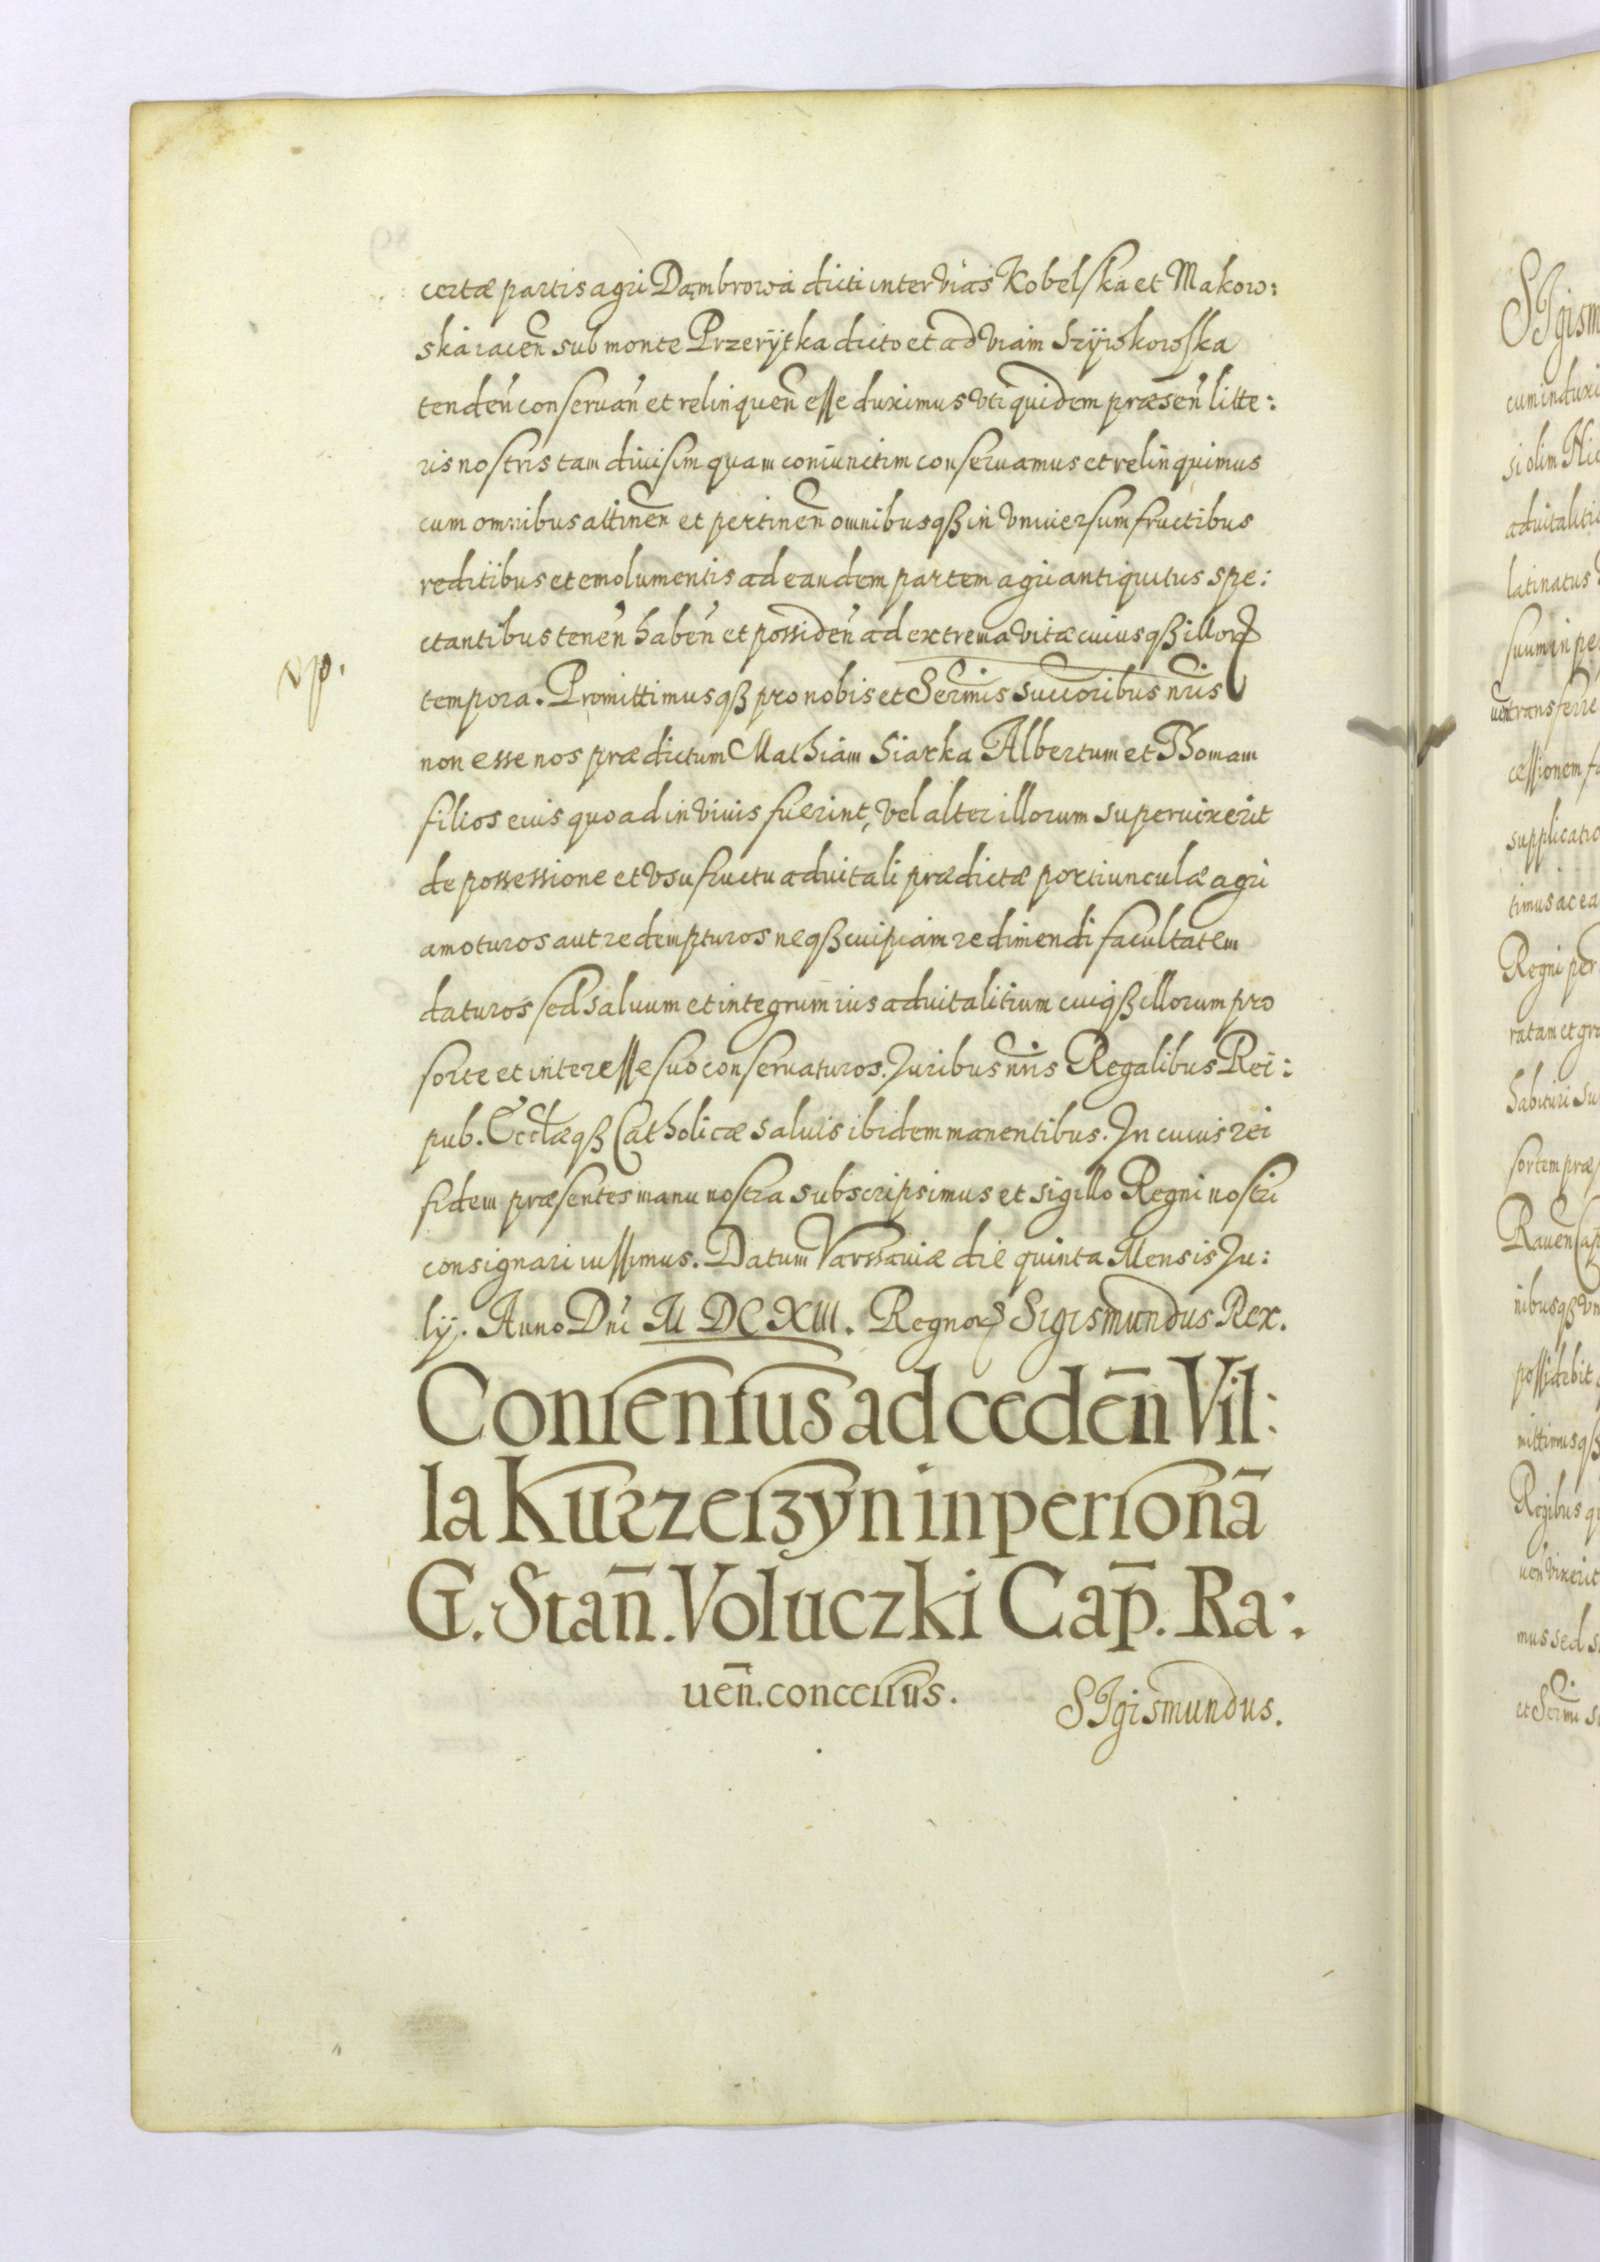 certæ partis agri Dąmbrowa dicti inter vias Kobelska et Makow:
ska iaceñ sub monte Przerÿtka dicto et ad viam
tendeñ conservañ et relinqueñ esse duximus uti quidem præseñ litte:
ris nostris tam divisim quam coniunctim conservamus et relinquimus
cum omnibus attineñ et pertineñ omnibusqȝ in vniuersum fructibus
reditibus et emolumentis ad eandem partem agri antiquitus spe:
ctantibus teneñ habeñ et possideñ ad extrema vitæ cuiusqȝ illorꝝ
tempora. Promittimusqȝ pro nobis et Sermis Succoribus nris
non esse nos prædictum Mathiam Siarka Albertum et Thomam
filios eius quoad in vivis fuerint, vel alter illorum supervixerit
de possessione et vsufructu advitali prædictæ portiunculæ agri
amoturos aut redempturos neqȝ cuipiam redimendi facultatem
daturos sed salvum et integrum ius advitalitium cuiqȝ illorum pro
sorte et interesse suo conservaturos. Juribus nris Regalibus Rei:
pub. Ecclæqȝ Catholicæ salvis ibidem manentibus. In cuius rei
fidem præsentes manu nostra subscripsimus et sigillo Regni nostri
consignari iussimus. Datum Varssaviæ die quinta Mensis Ju:
lij. Anno Dni M DC XIII. Regnorꝝ Sigismundus Rex.
Consensus ad cedeñ Vil:
la Kurzeszyn in personā
G. Stañ. Voluczki Cap̄. Ra:.
ueñ. concessus.
SIgismundus.